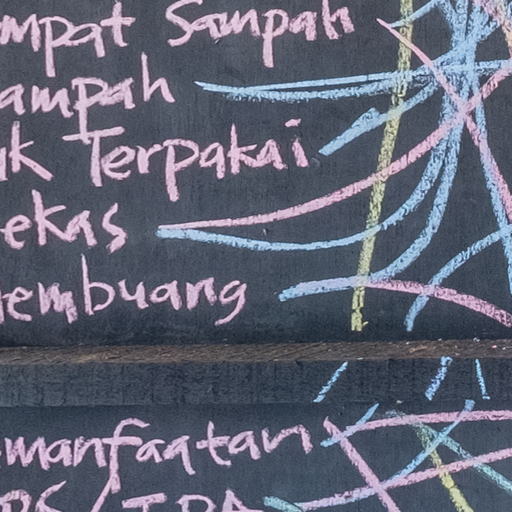 mpat Sampah
ampah
uk Terpakai
ekas
embuang
manfaatan
PS/TPA